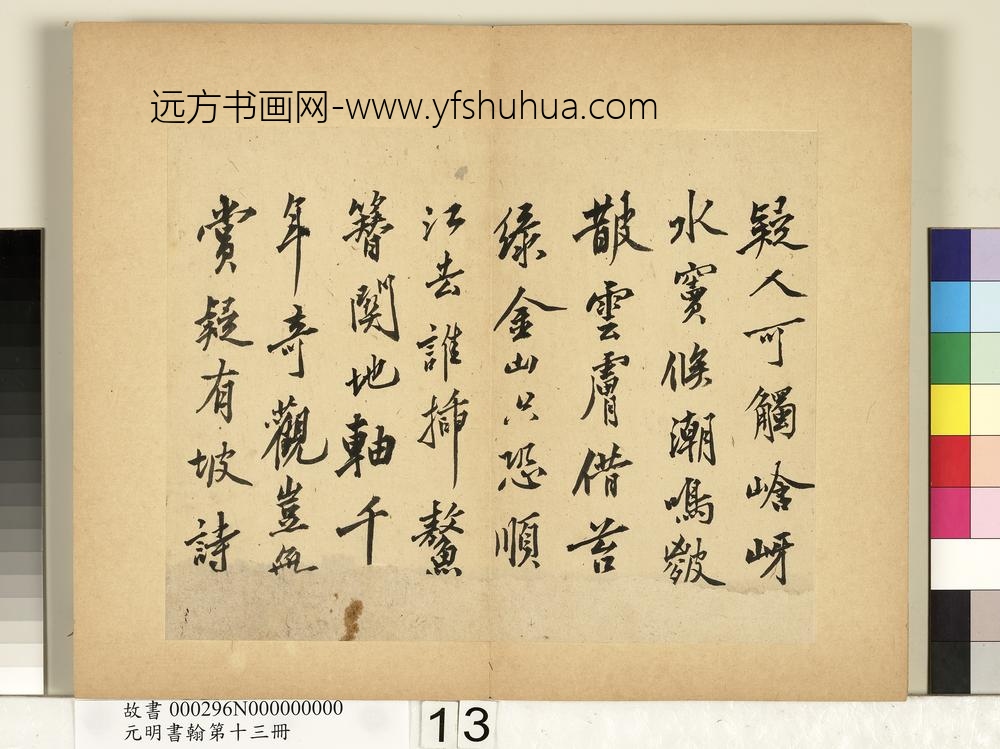 远方书画网-www.yfshuhua.com
疑人可觸㟏岈
水竇候潮鳴皴
皵雲膚借苔
綠金山只恐順
江去誰插鰲
簪關地軸千
年奇觀豈無
賞疑有坡詩
故書 000296N000000000
元明書翰第十三冊
13